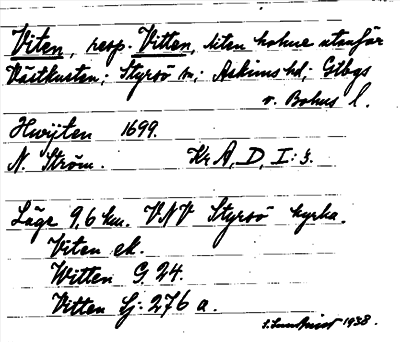 Viten, resp. Vitten, liten holme utanför
Västkusten; Styrsö sn; Askims hd; Gtbgs
o. Bohus l.
Hwijten 1699.
N. Ström. Kr A, D, I: 3.
Läge 9,6 km. VNV Styrsö kyrka.
Viten ek.
Witten G. 24.
Vitten Sj. 276 a.
S. Sundqvist 1938.